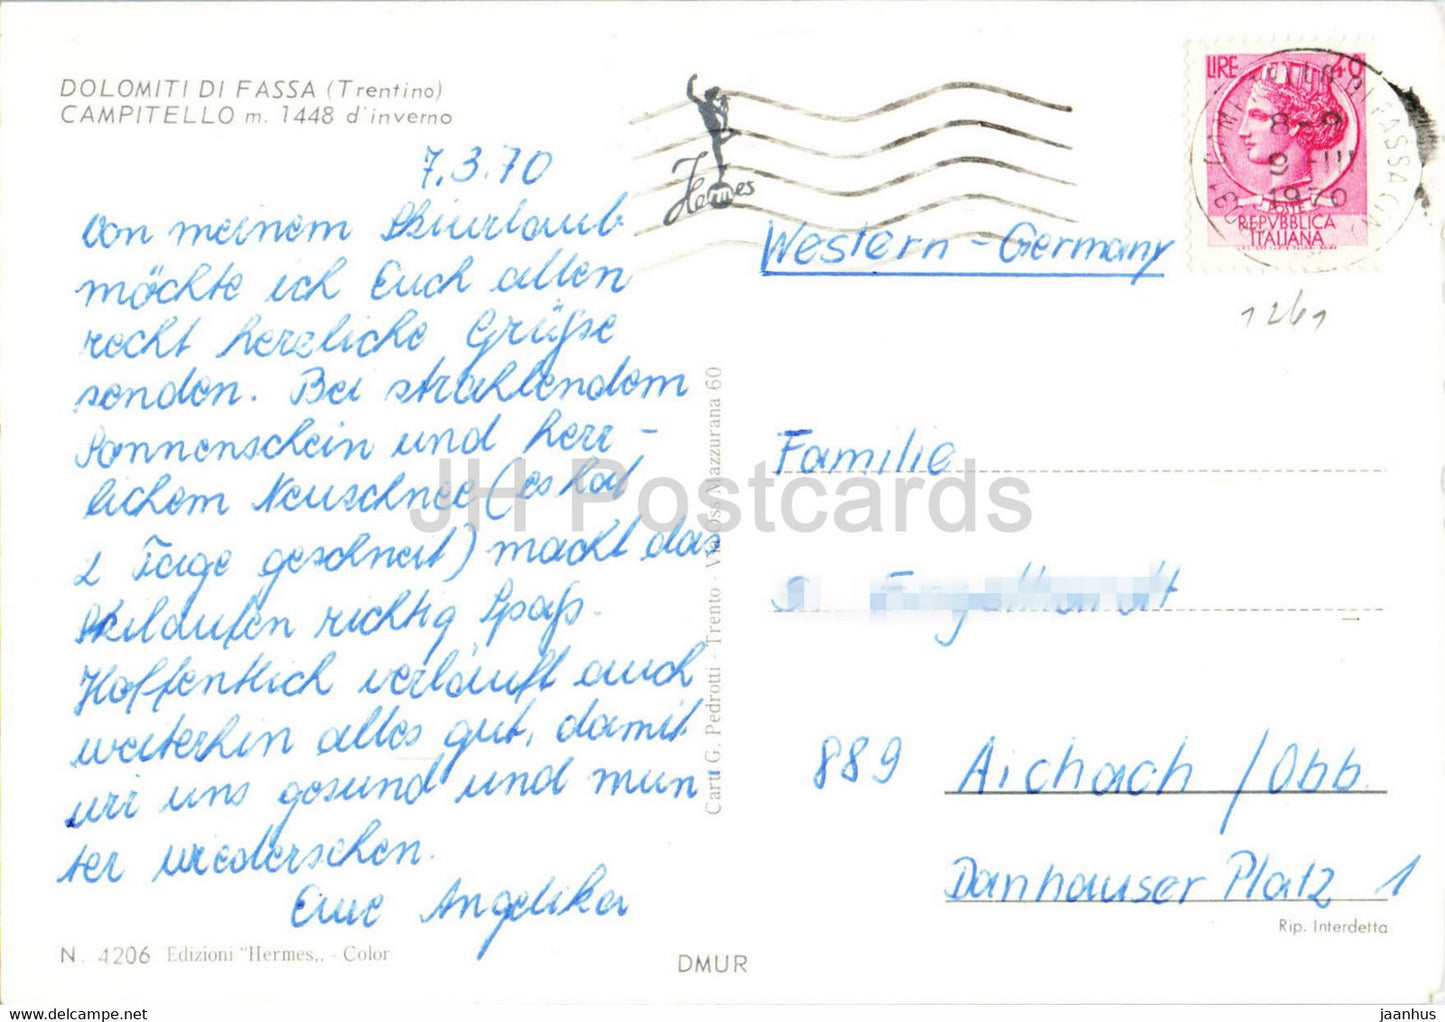 DOLOMITI DI FASSA (Trentino)
CAMPITELLO m. 1448 d'inverno
7.3.70
Von meinem Skiurlaub
möchte ich Euch allen
recht herzliche Grüße
senden. Bei strahlendem
Sonnenschein und herr-
lichem Neuschnee (es hat
2 Tage geschneit) macht das
Skilaufen richtig Spaß.
Hoffentlich verläuft auch
weiterhin alles gut, damit
wir uns gesund und mun
ter wiedersehen.
Eure Angelika
N. 4206 Edizioni "Hermes,, - Color
DMUR
Cart. G. Pedrotti - Trento - Via Oss Mazzurana 60
Hermes
LIRE 40
8-9
9-III
1970
POSTE
REPVBBLICA
ITALIANA
Western-Germany
1261
Familie
889 Aichach/Obb.
Danhauser Platz 1
Rip. Interdetta
JH Postcards
hipstamp.com
jaanhus